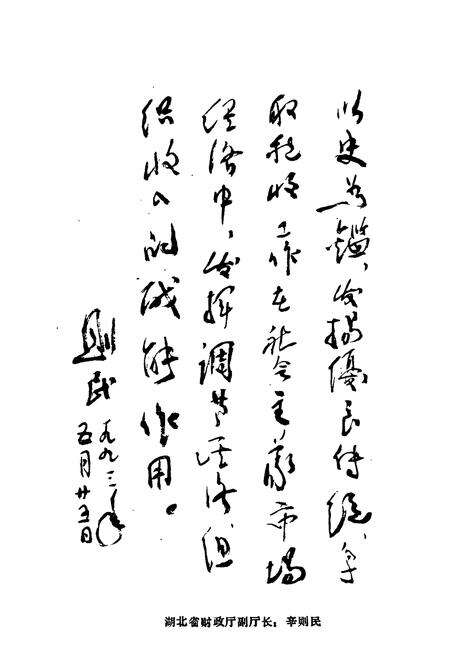 以史为鑑，发扬優良传统，争
取税收工作在社会主義市场
经济中，发挥调节经济组
织收入的职能作用。
則民
一九九三年
五月廿五日
湖北省财政厅副厅长：辛则民